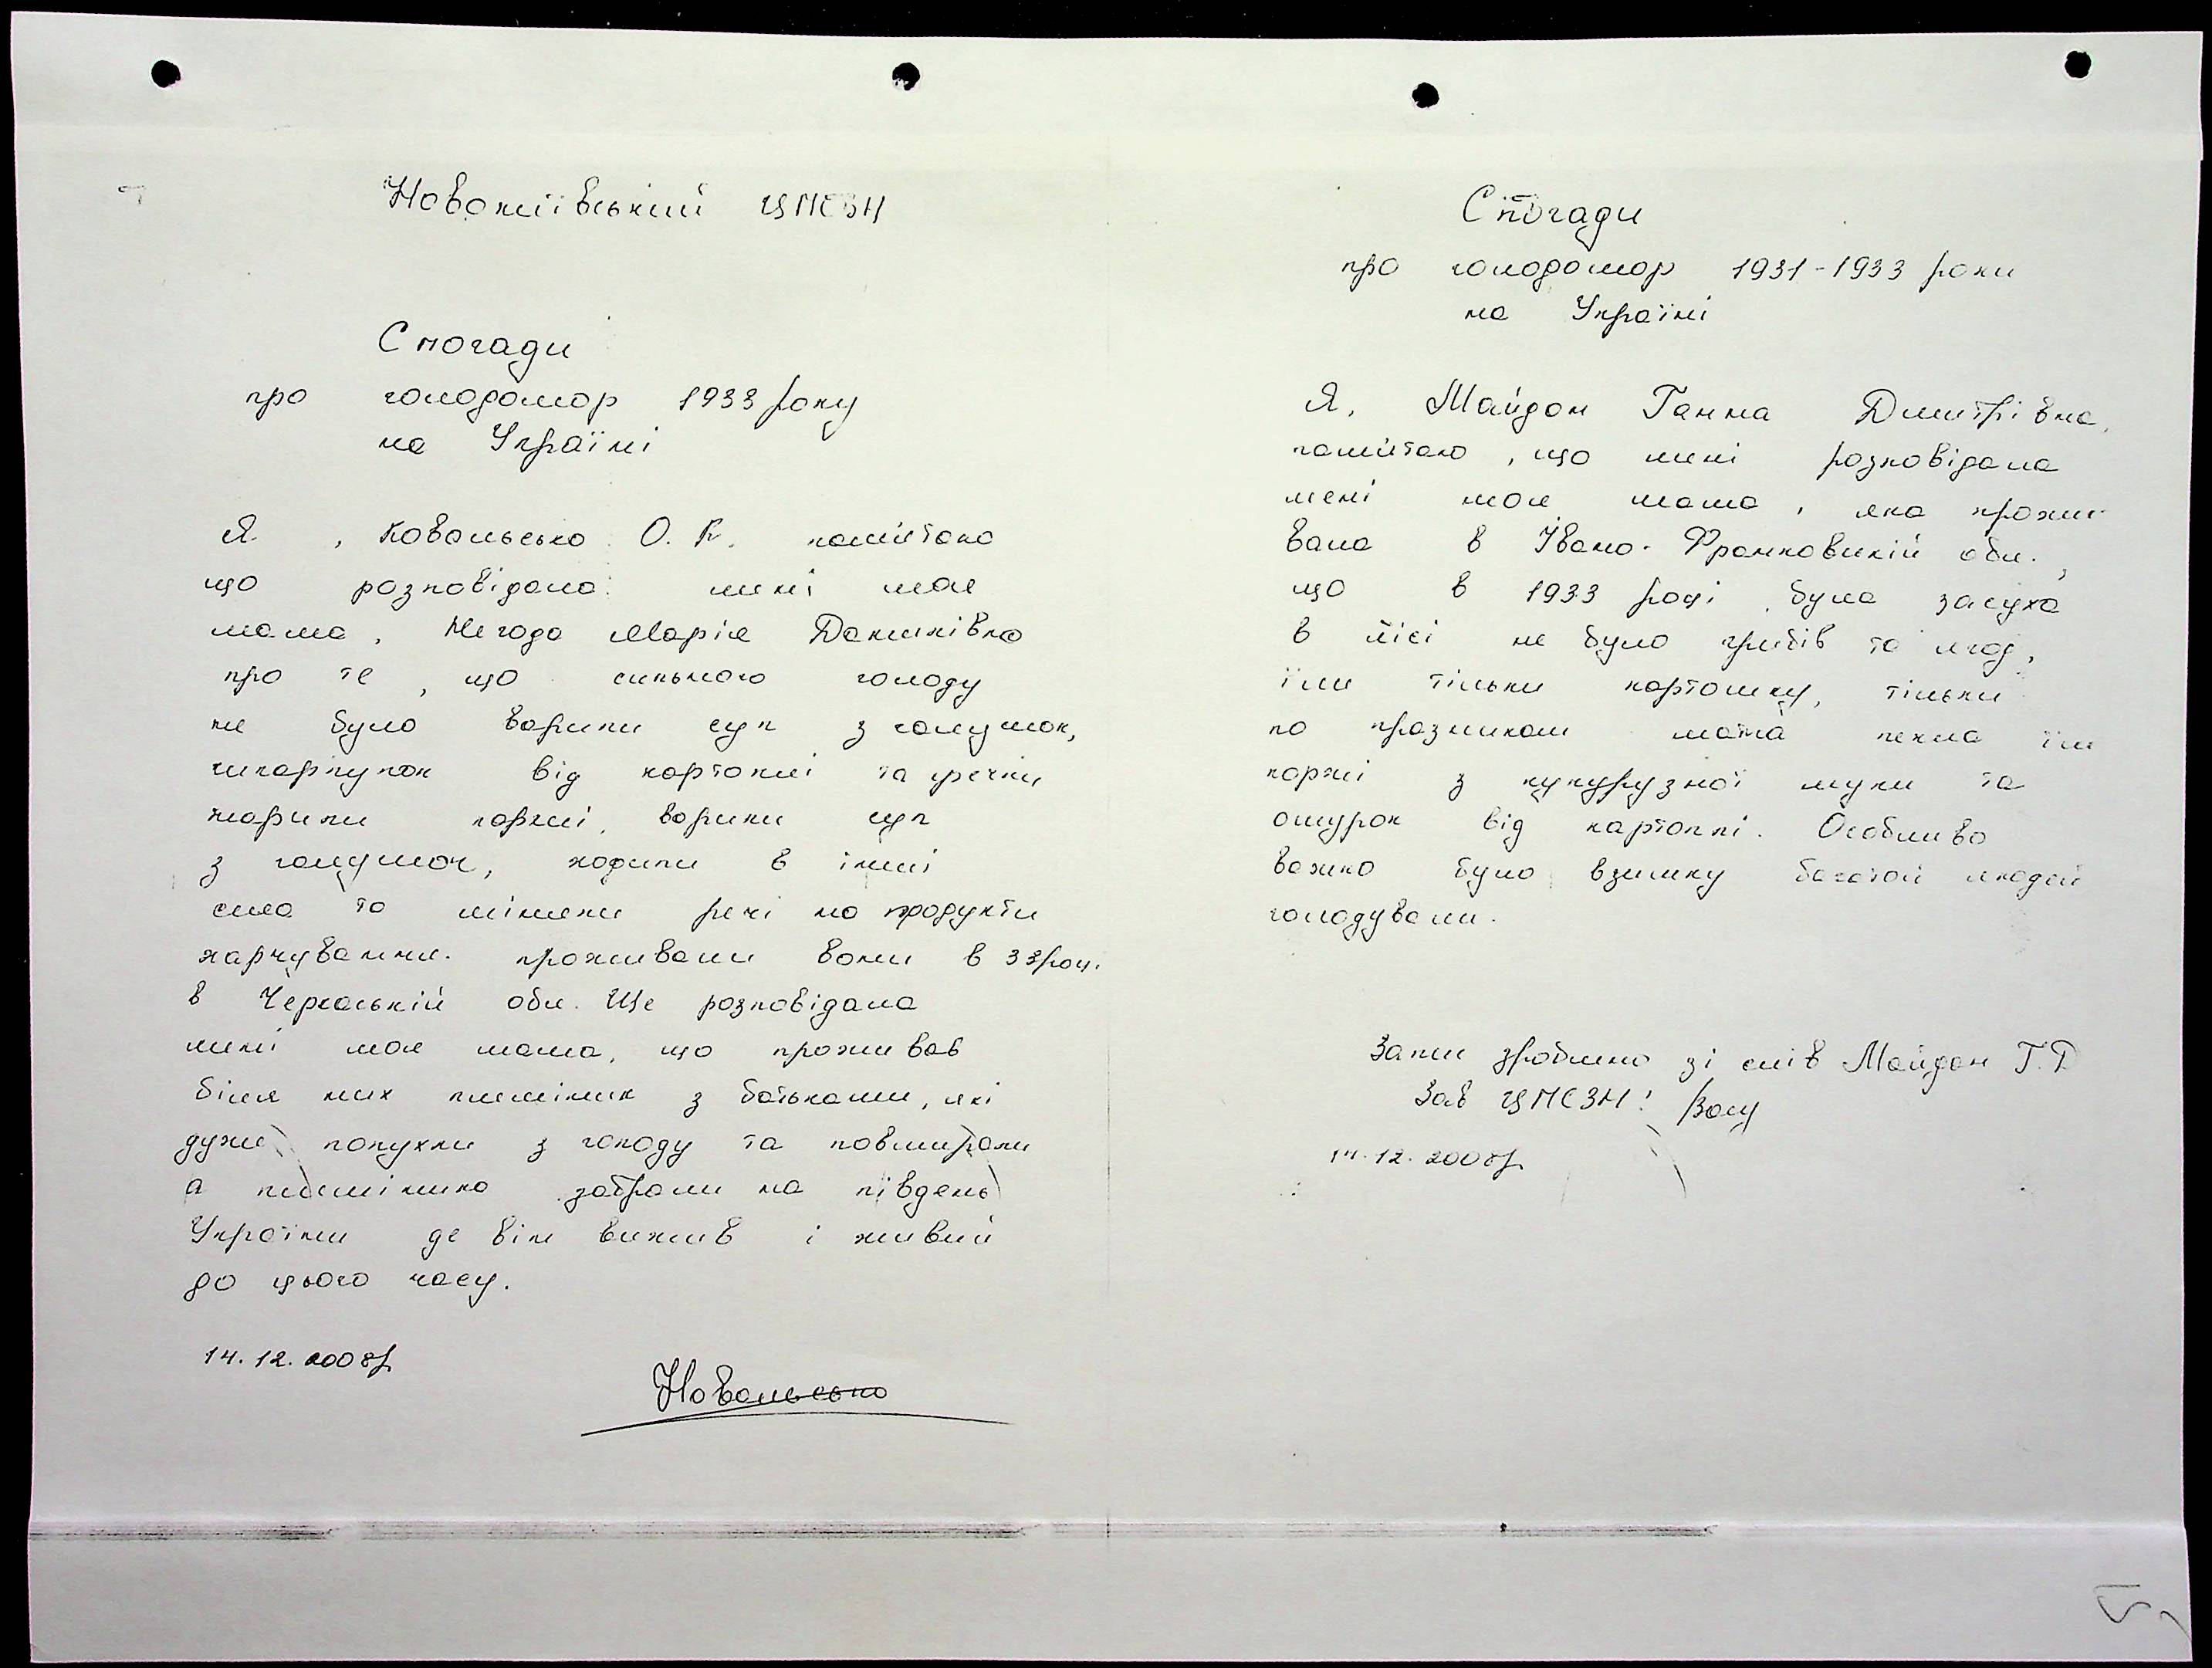 Новокиївський ЦПСЗН
Спогади
про голодомор 1933 року
на Україні
Я, Ковальсько О. К. памʼятаю
що розповідала мені моя
мама, Негода Марія Данилівна
про те, що сильного голоду
не було варили суп з галушок,
шкарлупок від картоплі та гречки
жарили коржі, варили суп
з галушок, ходили в інші
села та міняли речі на продукти
харчування. проживали вони в 33 роц.
в Черкаській обл. Ще розповідала
мені моя мама, що проживав
біля них племінник з батьками, які
дуже попухли з голоду та повмирали
а племінника забрали на південь
України де він вижив і живий
до цього часу.
14.12.2008р.
Ковальсько
Спогади
про голодомор 1931-1933 роки
на Україні
Я, Майдан Ганна Дмитрівна,
памʼятаю, що мені розповідала
мені моя мама, яка прожи-
вала в Івано-Франковській обл.,
що в 1933 році була засуха
в лісі не було грибів та ягод,
їли тільки картошку, тільки
по празникам мама пекла їм
коржі з кукурузної муки та
ошурок від картоплі. Особливо
важко було взимку багатой людей
голодували.
Запис зроблено зі слів Майдан Г.Д
Зав ЦПСЗН:
14.12.2008р.